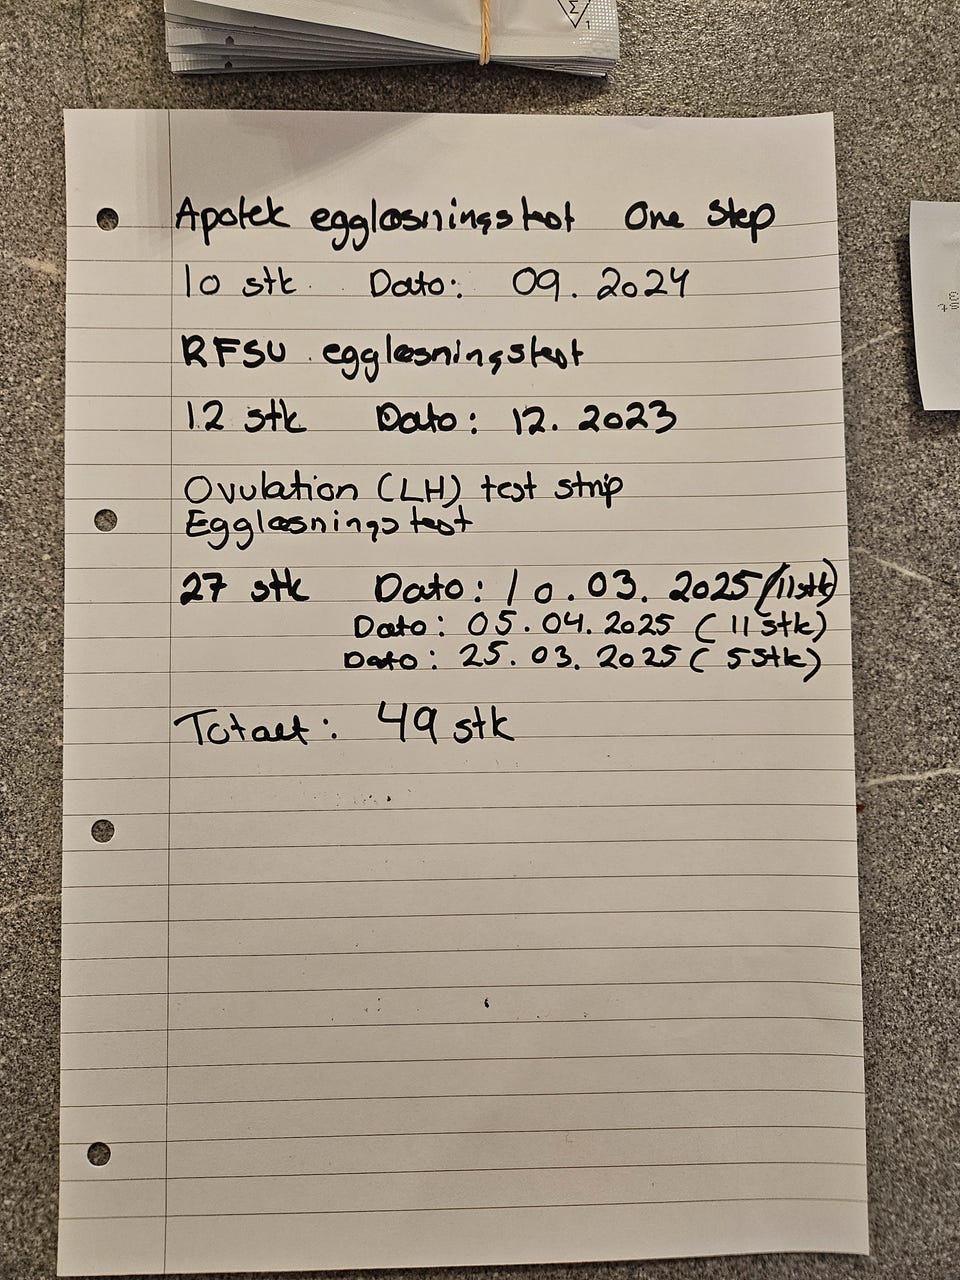 Apotek eggløsningstest One Step
10 stk Dato: 09.2024
RFSU eggløsningstest
12 stk Dato: 12.2023
Ovulation (LH) test strip
Eggløsningstest
27 stk Dato: 10.03.2025 (11stk)
Dato: 05.04.2025 (11 stk)
Dato: 25.03.2025 (5 stk)
Totalt: 49 stk